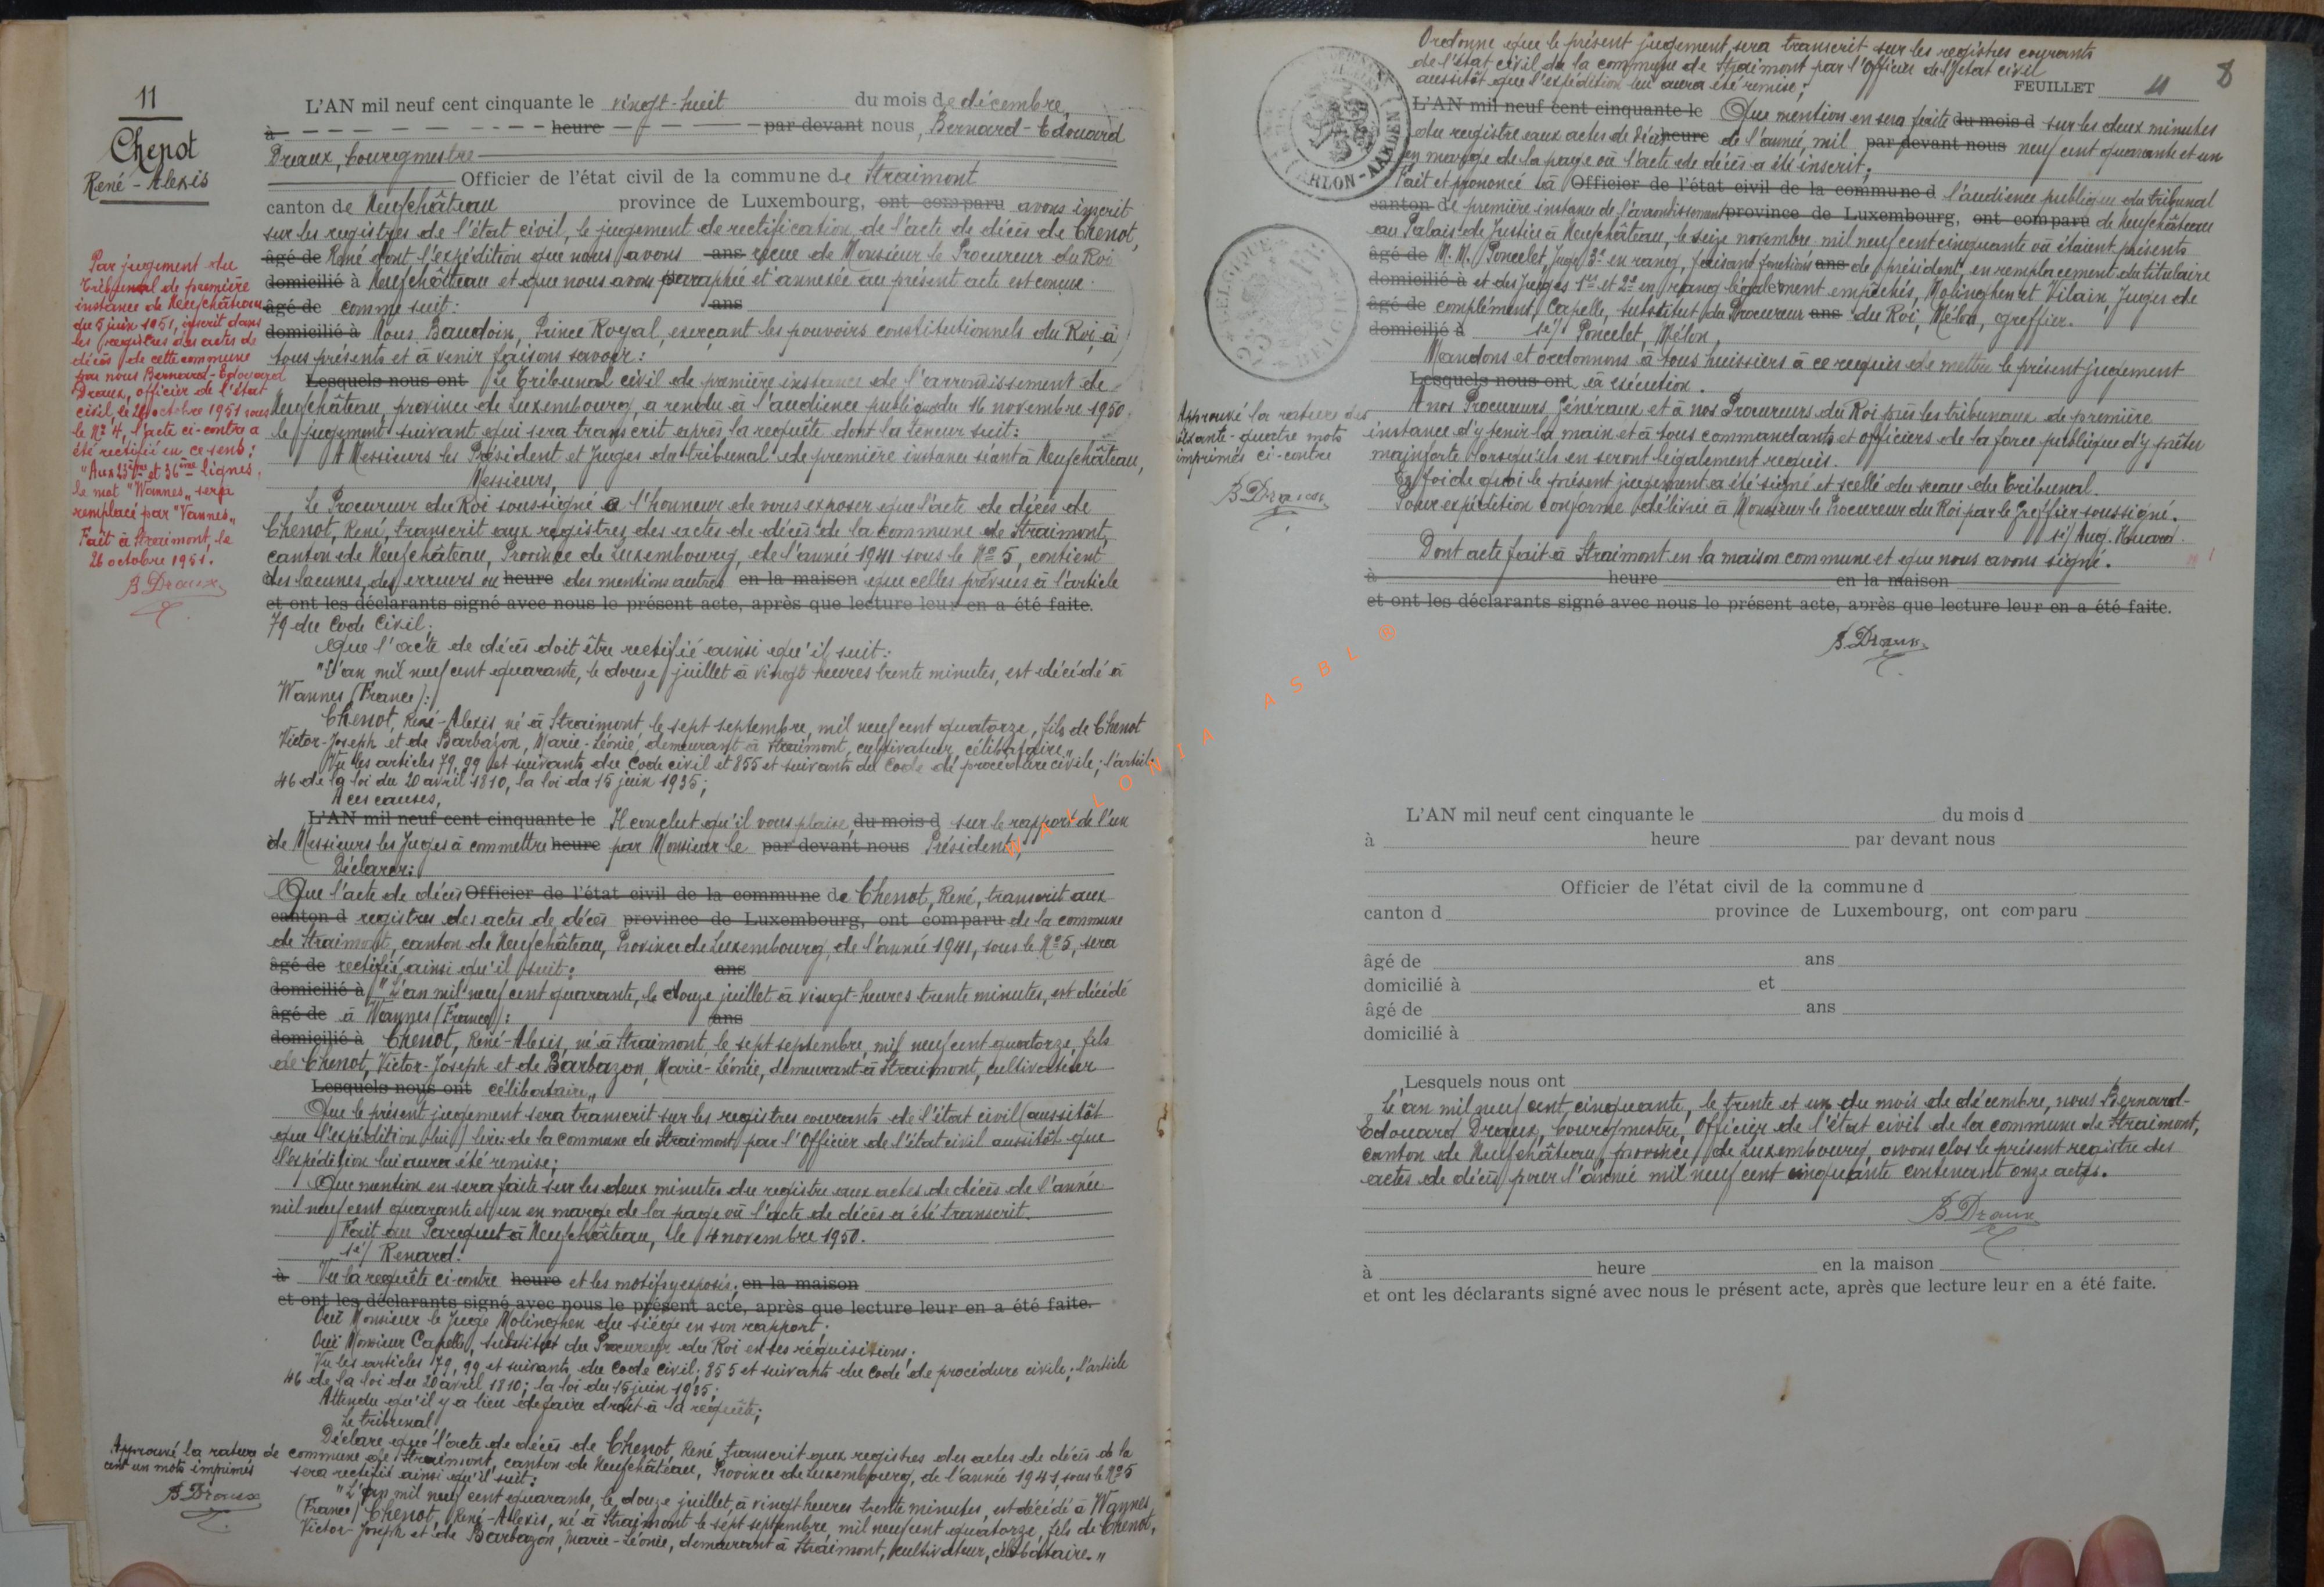 11
Chenot
René-Alexis
L'AN mil neuf cent cinquante le vingt-huit du mois de décembre,
à heure par devant nous, Bernard-Edouard
Draux, bourgmestre
Officier de l'état civil de la commune de Straimont
canton de Neufchâteau province de Luxembourg, ont comparu avons inscrit
sur les registres de l'état civil, le jugement de rectification de l'acte de décès de Chenot,
âgé de René dont l'expédition que nous avons ans reçue de Monsieur le Procureur du Roi
domicilié à à Neufchâtteau et que nous avons paraphée et annexée au présent acte est conçue
âgé de comme suit: ans
domicilié à Nous Baudoin, Prince Royal, exerçant les pouvoirs constitutionnels du Roi, à
tous présents et à venir faisons savoir:
Lesquels nous ont Le Tribunal civil de première instance de l'arrondissement de
Neufchâteau, province de Luxembourg, a rendu à l'audience publique du 16 novembre 1950,
le jugement suivant qui sera transcrit après la requête dont la teneur suit:
A Messieurs les Président et Juges du tribunal de première instance séant à Neufchâteau,
Messieurs,
Le Procureur du Roi soussigné a l'honneur de vous exposer que l'acte de décès de
Chenot, René, transcrit aux registres des actes de décès de la commune de Straimont,
canton de Neufchâteau, Province de Luxembourg, de l'année 1941 sous le N° 5, contient
des lacunes, des erreurs ou heure des mentions autres en la maison que celles prévues à l'article
et ont les déclarants signé avec nous le présent acte, après que lecture leur en a été faite.
79 du Code Civil;
Que l'acte de décès doit être rectifié ainsi qu'il suit:
"L'an mil neuf cent quarante, le douze juillet à vingt heures trente minutes, est décédé à
Wannes (France):
Chenot, René-Alexis, né à Straimont le sept septembre, mil neuf cent quatorze, fils de Chenot
Victor-Joseph et de Barbazon, Marie-Léonie, demeurant à Straimont, cultivateur, célibataire"
Vu les articles 79, 99 et suivants du Code civil et 855 et suivants du Code de procédure civile; l'article
46 de la loi du 20 avril 1810, la loi du 15 juin 1935;
A ces causes,
L'AN mil neuf cent cinquante le Il conclut qu'il vous plaise, du mois d sur le rapport de l'un
de Messieurs les Juges à commettre heure par Monsieur le par devant nous Président,
Déclarer:
Que l'acte de décès Officier de l'état civil de la commune de Chenot, René, transcrit aux
canton d registres des actes de décès province de Luxembourg, ont comparu de la commune
de Straimont, canton de Neufchâteau, Province de Luxembourg, de l'année 1941, sous le N° 5, sera
âgé de rectifié ainsi qu'il suit: ans
domicilié à "L'an mil neuf cent quarante, le douze juillet à vingt-heures trente minutes, est décédé
âgé de à Wannes (France): ans
domicilié à Chenot, René-Alexis, né à Straimont le sept septembre mil neuf cent quatorze, fils
de Chenot, Victor-Joseph et de Barbazon, Marie-Léonie, demeurant à Straimont, cultivateur
Lesquels nous ont célibataire"
Que le présent jugement sera transcrit sur les registres courants de l'état civil (aussitôt
que l'expédition lui) lire: de la commune de Straimont par l'Officier de l'état civil aussitôt que
l'expédition lui aura été remise;
Que mention en sera faite sur les deux minutes du registre aux actes de décès de l'année
mil neuf cent quarante et un en marge de la page où l'acte de décès a été transcrit.
Fait au Parquet à Neufchâteau, le 4 novembre 1950.
sé/ Renard.
à Vu la requête ci-contre heure et les motifs y exposés; en la maison
et ont les déclarants signé avec nous le présent acte, après que lecture leur en a été faite.
Ouï Monsieur le Juge Molinghen du siège en son rapport;
Ouï Monsieur Capelle, substitut du Procureur du Roi en ses réquisitions;
Vu les articles 79, 99 et suivants du Code civil; 855 et suivants du Code de procédure civile; l'article
46 de la loi du 20 avril 1810; la loi du 15 juin 1935;
Attendu qu'il y a lieu de faire droit à la requête;
Le tribunal
Déclare que l'acte de décès de Chenot René transcrit aux registres des actes de décès de la
commune de Straimont, canton de Neufchâteau, Province de Luxembourg, de l'année 1941, sous le N° 5
sera rectifié ainsi qu'il suit:
"L'an mil neuf cent quarante, le douze juillet, à vingt heures trente minutes, est décédé à Wannes
(France) Chenot, René-Alexis, né à Straimont le sept septembre mil neuf cent quatorze, fils de Chenot,
Victor-Joseph et de Barbazon, Marie-Léonie, demeurant à Straimont, cultivateur, célibataire."
Par jugement du
tribunal de première
instance de Neufchâteau
du 5 juin 1951, inscrit dans
les registres des actes de
décès de cette commune
par nous Bernard-Edouard
Draux, officier de l'état
civil, le 26 octobre 1951 sous
le N° 4, l'acte ci-contre a
été rectifié en ce sens:
"Aux 23ème et 36ème lignes,
le mot "Wannes" sera
remplacé par "Vannes"
Fait à Straimont, le
26 octobre 1951.
B. Draux
Approuvé la rature de
cent un mots imprimés
B. Draux
Ordonne que le présent jugement sera transcrit sur les registres courants
de l'état civil de la commune de Straimont par l'Officier de l'état civil
aussitôt que l'expédition lui aura été remise;
FEUILLET 11 8
L'AN mil neuf cent cinquante le Que mention en sera faite du mois d sur les deux minutes
du registre aux actes de décès heure de l'année, mil par devant nous neuf cent quarante et un
en marge de la page où l'acte de décès a été inscrit;
Fait et prononcé à Officier de l'état civil de la commune d l'audience publique du tribunal
canton de première instance de l'arrondissement province de Luxembourg, ont comparu de Neufchâteau
au Palais de Justice à Neufchâteau, le seize novembre mil neuf cent cinquante où étaient présents
âgé de M.M. Poncelet, Juge 3e en rang, faisant fonctions ans de président en remplacement du titulaire
domicilié à et des Juges 1er et 2e en rang légalement empêchés, Molinghen et Vilain, Juges de
âgé de complément, Capelle, substitut du Procureur ans du Roi, Mélon, greffier.
domicilié à sé/ Poncelet, Mélon,
Mandons et ordonnons à tous huissiers à ce requis de mettre le présent jugement
Lesquels nous ont à exécution.
A nos Procureurs Généraux et à nos Procureurs du Roi près les tribunaux de première
instance d'y tenir la main et à tous commandants et officiers de la force publique d'y prêter
main forte lorsqu'ils en seront légalement requis.
En foi de quoi le présent jugement a été signé et scellé du sceau du tribunal.
Pour expédition conforme délivrée à Monsieur le Procureur du Roi par le Greffier soussigné.
sé/ Aug.
Dont acte fait à Straimont en la maison commune et que nous avons signé.
à heure en la maison
et ont les déclarants signé avec nous le présent acte, après que lecture leur en a été faite.
B. Draux
Approuvé la rature des
soixante-quatre mots
imprimés ci-contre
B. Draux
ARLON-AARDEN
BELGIQUE
BELGIE
WALLONIA ASBL ®
L'AN mil neuf cent cinquante le du mois d
à heure par devant nous
Officier de l'état civil de la commune d
canton d province de Luxembourg, ont comparu
âgé de ans
domicilié à et
âgé de ans
domicilié à
Lesquels nous ont
L'an mil neuf cent, cinquante, le trente et un du mois de décembre, nous Bernard-
Edouard Draux, bourgmestre, Officier de l'état civil de la commune de Straimont,
canton de Neufchâteau, province de Luxembourg, avons clos le présent registre des
actes de décès pour l'année mil neuf cent cinquante contenant onze actes.
B. Draux
à heure en la maison
et ont les déclarants signé avec nous le présent acte, après que lecture leur en a été faite.